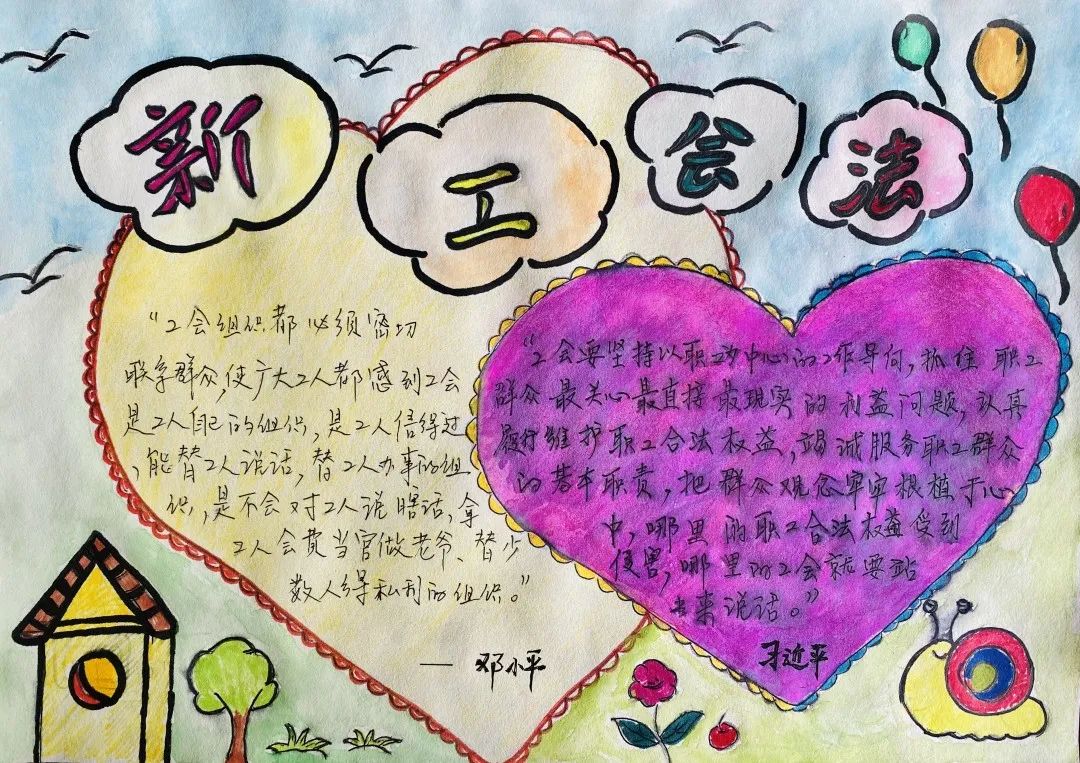 新工会法
“工会组织都必须密切
联系群众,使广大工人都感到工会
是工人自己的组织,是工人信得过
,能替工人说话,替工人办事的组
织,是不会对工人说瞎话,拿
工人会费当官做老爷、替少
数人得私利的组织。”
— 邓小平
“工会要坚持以职工为中心的工作导向,抓住职工
群众最关心最直接最现实的利益问题,认真
履行维护职工合法权益,竭诚服务职工群众
的基本职责,把群众观念牢牢根植于心
中,哪里的职工合法权益受到
侵害,哪里的工会就要站
出来说话。”
习近平